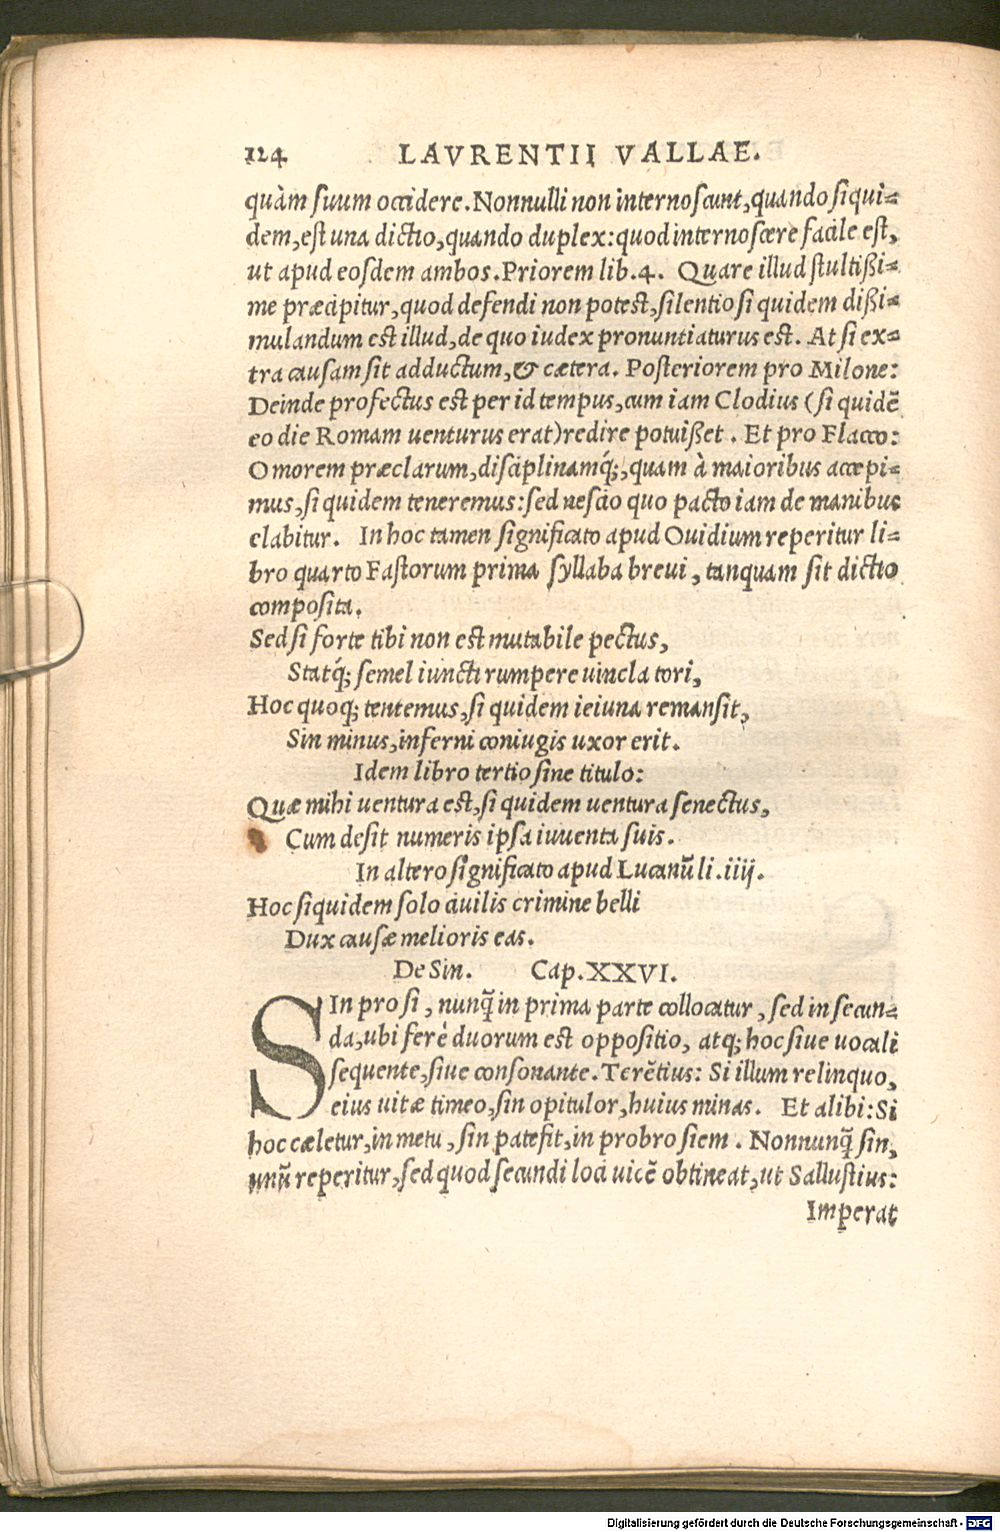 124 LAVRENTII VALLAE.
quàm suum occidere. Nonnulli non internoscunt, quando siqui-
dem, est una dictio, quando duplex: quod internoscere facile est,
ut apud eosdem ambos. Priorem lib. 4. Quare illud stultißi-
me præcipitur, quod defendi non potest, silentio si quidem dißi-
mulandum est illud, de quo iudex pronuntiaturus est. At si ex-
tra causam sit adductum, & cætera. Posteriorem pro Milone:
Deinde profectus est per id tempus, cum iam Clodius (si quidē
eo die Romam uenturus erat) redire potuißet. Et pro Flacco:
O morem præclarum, disciplinamq́;, quam à maioribus accepi-
mus, si quidem teneremus: sed nescio quo pacto iam de manibus
elabitur. In hoc tamen significato apud Ouidium reperitur li-
bro quarto Fastorum prima syllaba breui, tanquam sit dictio
composita.
Sed si forte tibi non est mutabile pectus,
Statq́; semel iuncti rumpere uincla tori,
Hoc quoq; tentemus, si quidem ieiuna remansit,
Sin minus, inferni coniugis uxor erit.
Idem libro tertio sine titulo:
Quæ mihi uentura est, si quidem uentura senectus,
Cum desit numeris ipsa iuuenta suis.
In altero significato apud Lucanū li. iiij.
Hoc siquidem solo ciuilis crimine belli
Dux causæ melioris eas.
De Sin. Cap. XXVI.
SIn pro si, nunq̃ in prima parte collocatur, sed in secun-
da, ubi ferè duorum est oppositio, atq; hoc siue uocali
sequente, siue consonante. Terētius: Si illum relinquo,
eius uitæ timeo, sin opitulor, huius minas. Et alibi: Si
hoc cæletur, in metu, sin patefit, in probro siem. Nonnunq̃ sin,
unū reperitur, sed quod secundi loci uicē obtineat, ut Sallustius:
Imperat
Digitalisierung gefördert durch die Deutsche Forschungsgemeinschaft - DFG